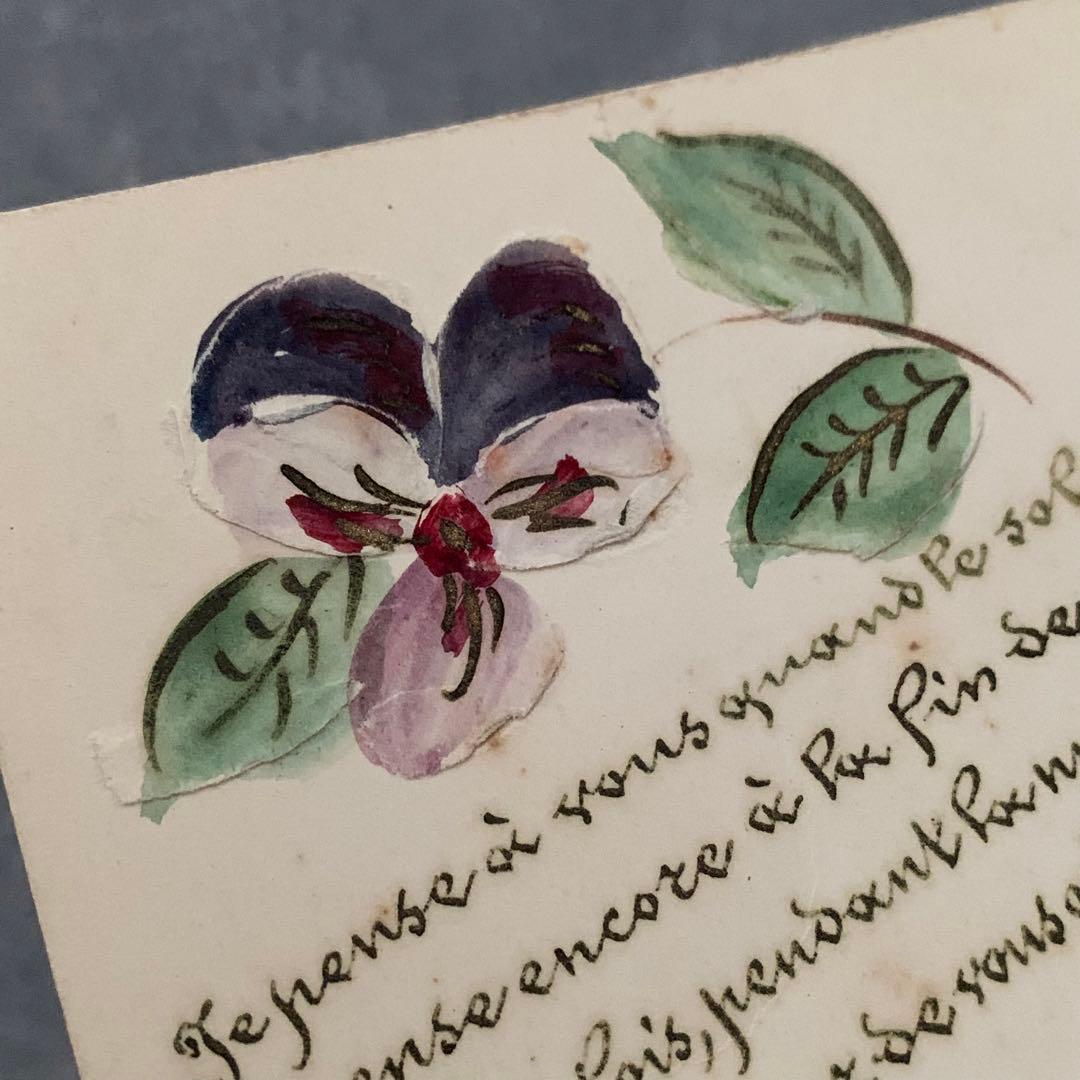 Je pense à vous quand le sol
ense encore à la fin de
fois, pendant la n
de vous